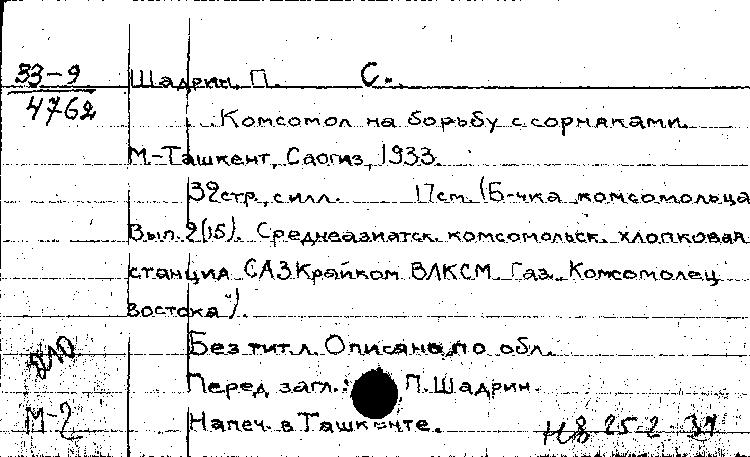 33-9 Шадрин, П. С.
4762
Комсомол на борьбу с сорняками.
М.-Ташкент, Саогиз, 1933.
32 стр., с илл. 17 см. (Б-чка комсомольца
Вып. 2(15). Среднеазиатск. комсомольск. хлопковая
станция САЗКрайком ВЛКСМ. Газ. "Комсомолец
востока").
Без тит. л. Описана по обл.
Перед загл.: П. Шадрин.
М-2 Напеч. в Ташкенте.
25-2-39